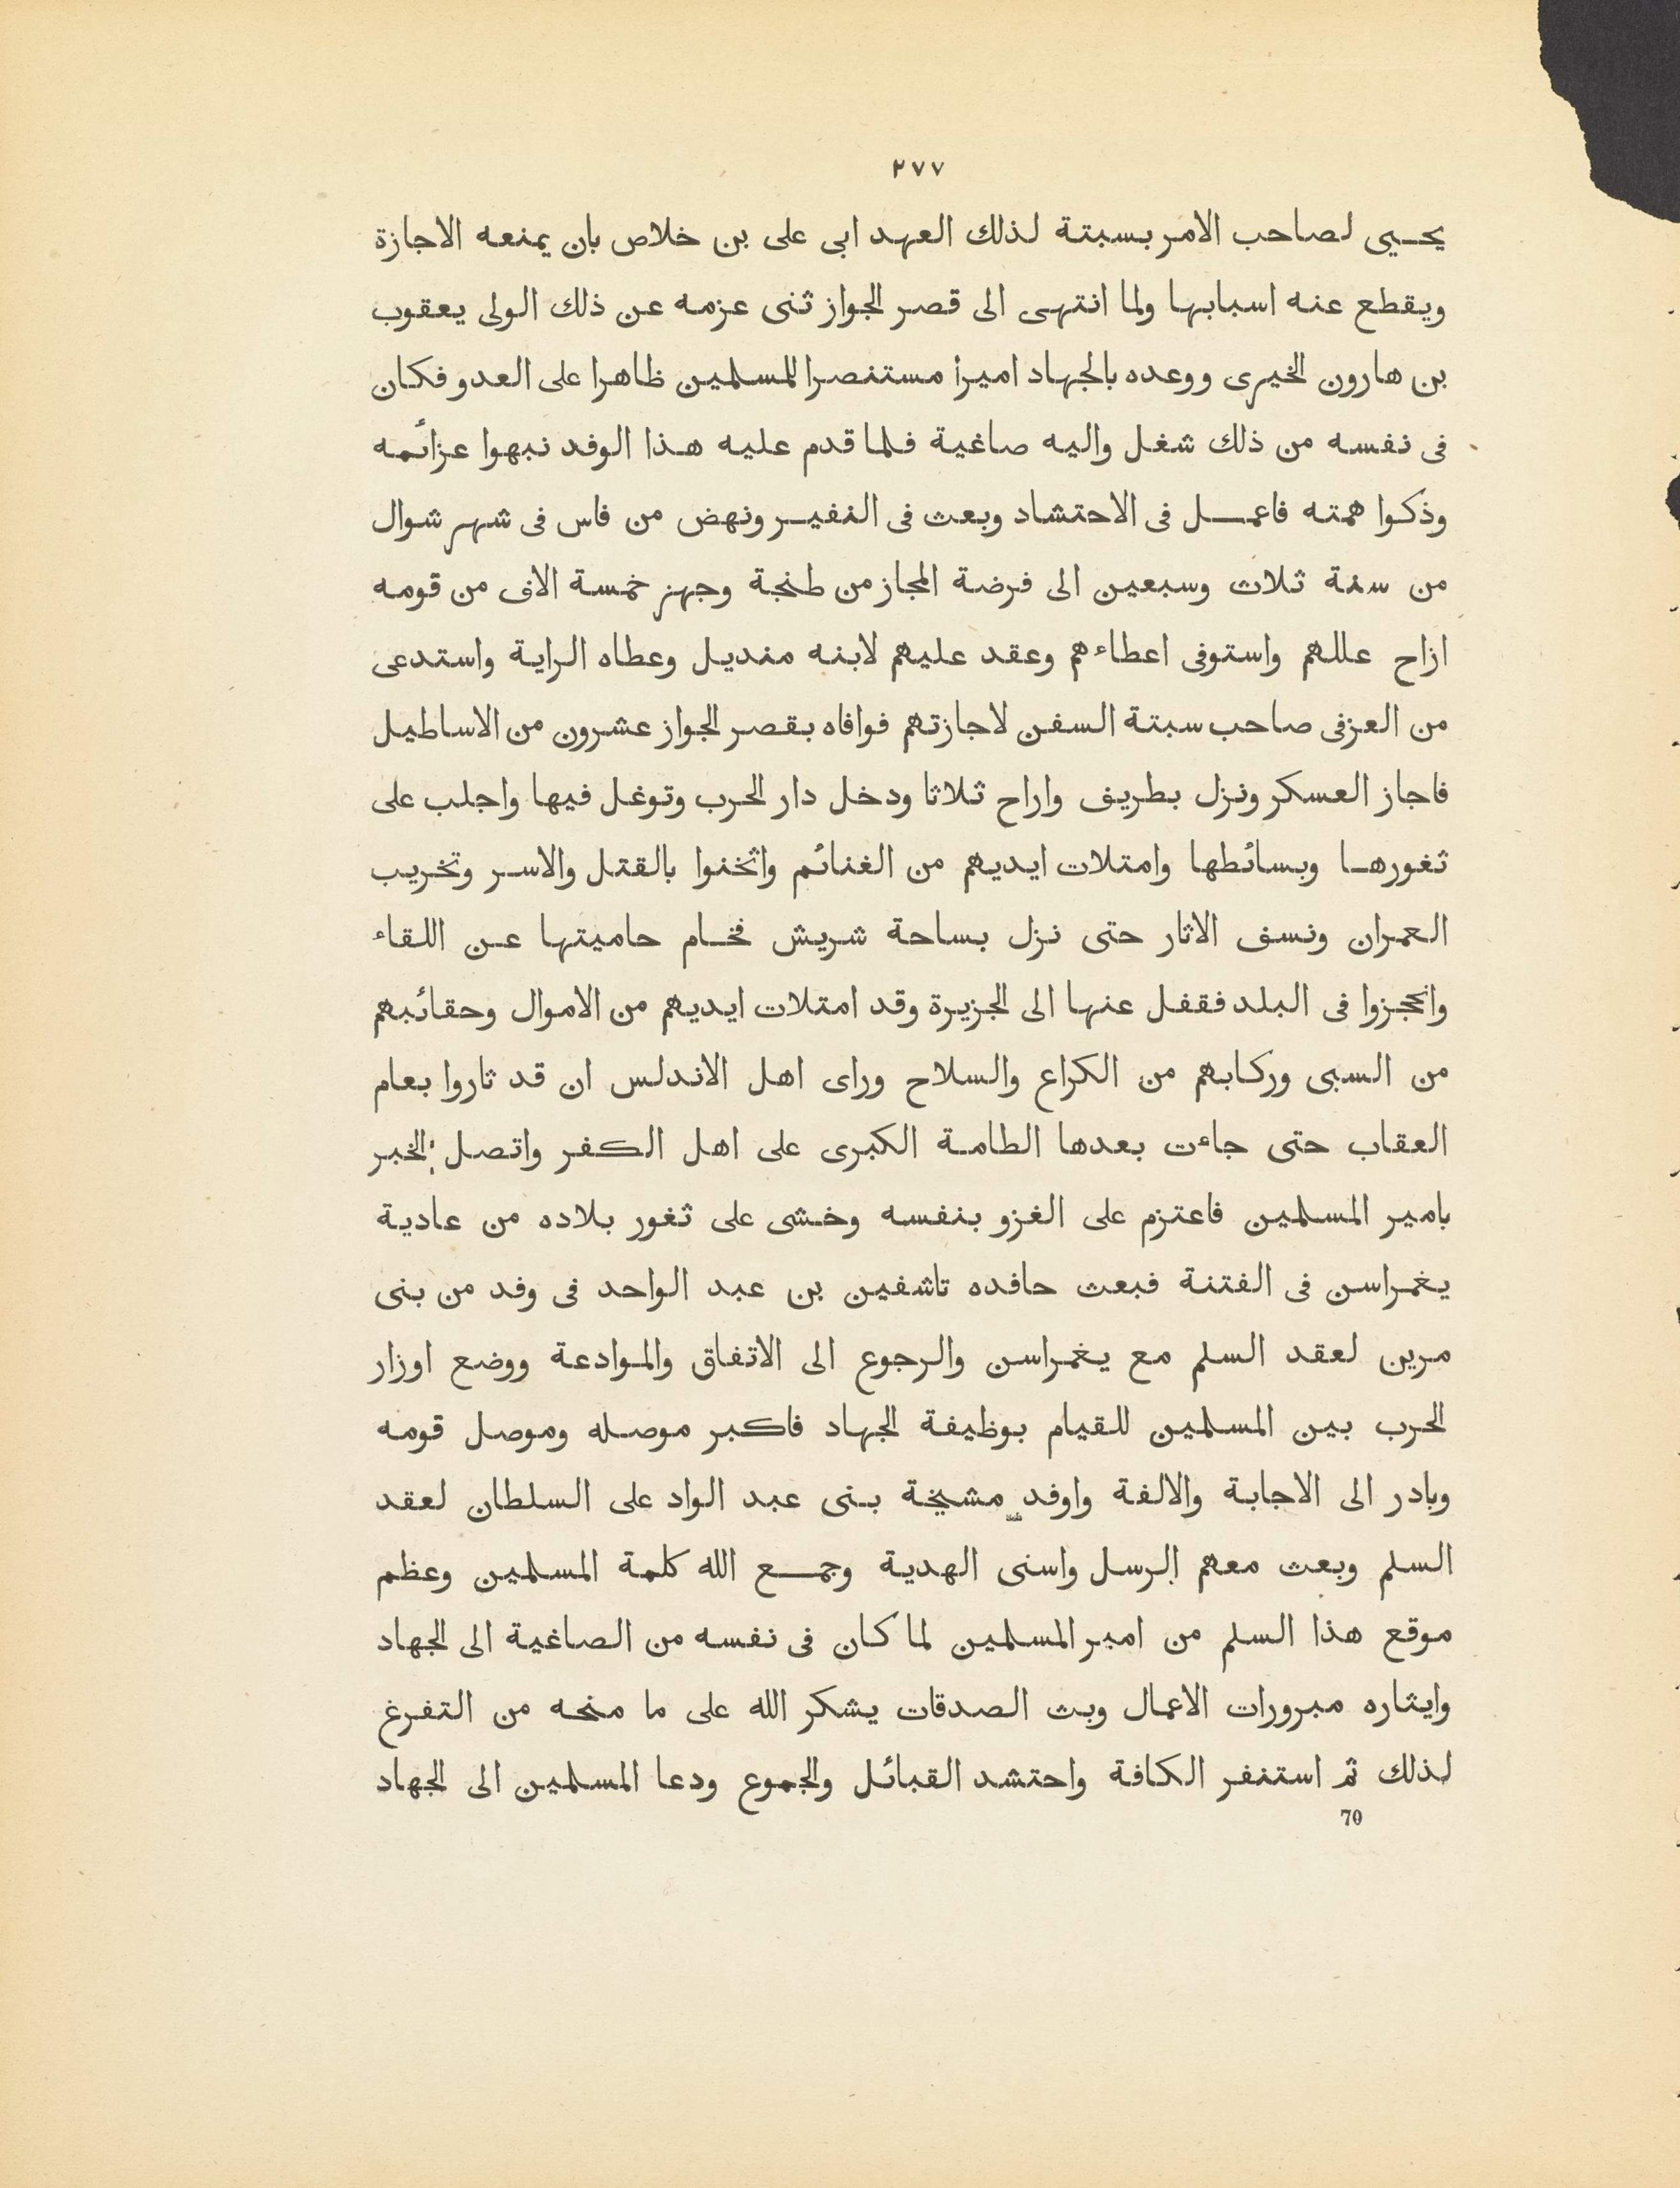 ٢٧٧
يحيى لصاحب الامر بسبتة لذلك العهد ابى على بن خلاص بان يمنعه الاجازة
ويقطع عنه اسبابها ولما انتهى الى قصر الجواز ثنى عزمه عن ذلك الولى يعقوب
بن هارون الخيرى ووعده بالجهاد اميرا مستنصرا للمسلمين ظاهرا على العدو فكان
فى نفسه من ذلك شغل واليه صاغية فلما قدم عليه هذا الوفد نبهوا عزائمه
وذكوا همته فاعمل فى الاحتشاد وبعث فى النفير ونهض من فاس فى شهر شوال
من سنة ثلاث وسبعين الى فرضة المجاز من طنجة وجهز خمسة الاف من قومه
ازاح عللهم واستوفى اعطاءهم وعقد عليهم لابنه منديل وعطاه الراية واستدعى
من العزفى صاحب سبتة السفن لاجازتهم فوافاه بقصر الجواز عشرون من الاساطيل
فاجاز العسكر ونزل بطريف واراح ثلاثا ودخل دار الحرب وتوغل فيها واجلب على
ثغورها وبسائطها وامتلات ايديهم من الغنائم واثخنوا بالقتل والاسر وتخريب
العمران ونسف الاثار حتى نزل بساحة شريش فخام حاميتها عن اللقاء
وانحجزوا فى البلد فقفل عنها الى الجزيرة وقد امتلات ايديهم من الاموال وحقائبهم
من السبى وركابهم من الكراع والسلاح وراى اهل الاندلس ان قد ثاروا بعام
العقاب حتى جاءت بعدها الطامة الكبرى على اهل الكفر واتصل الخبر
بامير المسلمين فاعتزم على الغزو بنفسه وخشى على ثغور بلاده من عادية
يغمراسن فى الفتنة فبعث حافده تاشفين بن عبد الواحد فى وفد من بنى
مرين لعقد السلم مع يغمراسن والرجوع الى الاتفاق والموادعة ووضع اوزار
الحرب بين المسلمين للقيام بوظيفة الجهاد فاكبر موصله وموصل قومه
وبادر الى الاجابة والالفة واوفد مشيخة بنى عبد الواد على السلطان لعقد
السلم وبعث معهم الرسل واسنى الهدية وجمع الله كلمة المسلمين وعظم
موقع هذا السلم من امير المسلمين لما كان فى نفسه من الصاغية الى الجهاد
وايثاره مبرورات الاعمال وبث الصدقات يشكر الله على ما منحه من التفرغ
لذلك ثم استنفر الكافة واحتشد القبائل والجموع ودعا المسلمين الى الجهاد
70